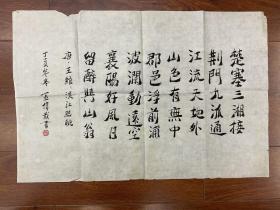 楚塞三湘接
荊門九派通
江流天地外
山色有無中
郡邑浮前浦
波瀾動遠空
襄陽好風日
留醉與山翁
唐 王維 漢江臨眺
丁亥冬 書